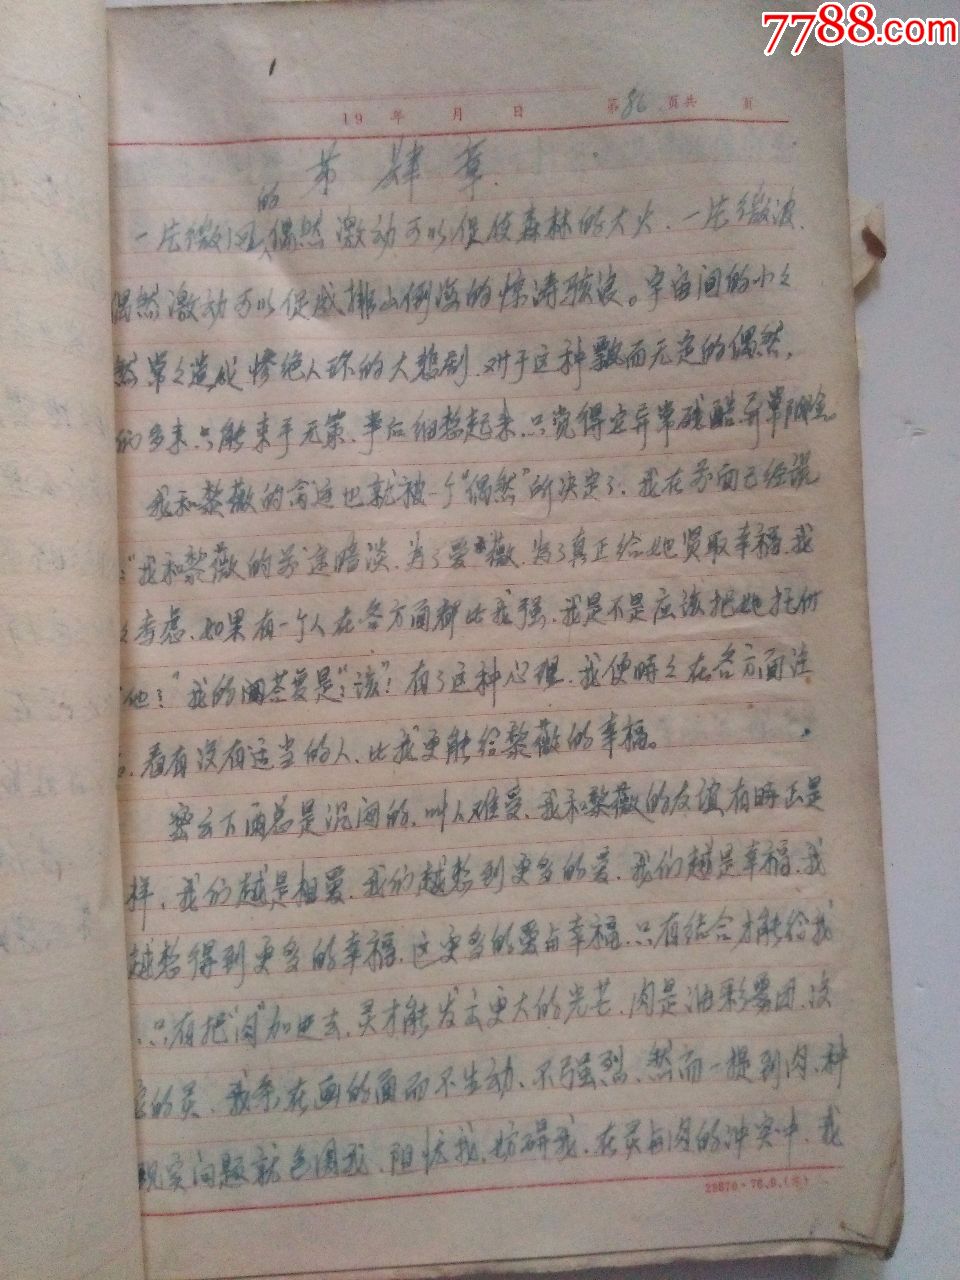 7788.com
19 年 月 日 第86页共 页
第肆章
的
一片微风偶然激动可以促使森林的大火、一片微波、
偶然激动可以促成排山倒海的惊涛骇浪。宇宙间的小々
然常々造成惨绝人环的大悲剧、对于这种飘而无定的偶然、
们多末、只能束手无策、事后细想起来、只觉得它异常残酷、异常阴
我和黎薇的命运也就被一个“偶然”所决定了、我在前面已经说
：“我和黎薇的前途暗淡、为了爱薇、为了真正给她贤取幸福、我
々考虑、如果有一个人在各方面都比我强、我是不是应该把她托付
他？”我的回答爰是“该”！有了这种心理、我便时々在各方面注
看有没有适当的人、比我更能给黎薇的幸福。
密云下雨总是沉闷的、叫人难受、我和黎薇的友谊有时正是
样、我们越是相爱、我们越想到更多的爱、我们越是幸福、我
越想得到更多的幸福、这更多的爱与幸福、只有结合才能给我
、只有把“肉”加进去、灵才能发出更大的光芒、肉是油彩、没
的灵、我系在画的面而不生动、不强烈、然而一提到肉、种
现实问题就包围我、阻扰我、妨碍我、在灵与肉的冲突中、我
28870·76.9.(京)